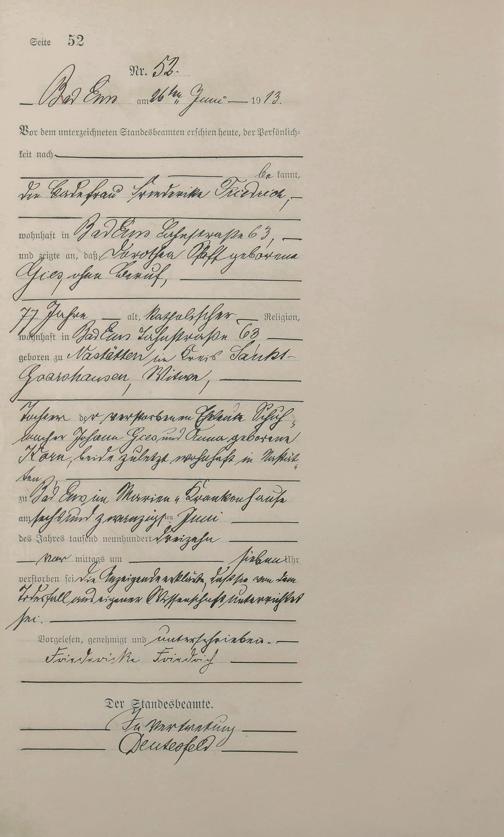 Seite 52
Nr. 52.
Bad Ems am 26ten Juni 1913.
Vor dem unterzeichneten Standesbeamten erschien heute, der Persönlich-
keit nach
be kannt,
die Badefrau Friederike Friedrich,
wohnhaft in Bad Ems Lahnstraße 63,
und zeigte an, daß Dorothea geborene
Gies, ohne Beruf,
77 Jahre alt, katholischer Religion,
wohnhaft in Bad Ems Lahnstraße 63
geboren zu Nastätten im Kreis Sankt-
Goarshausen, Witwe,
Tochter der verstorbenen Eheleute Schuh-
macher Johann Gies und Anna geborene
Korn, beide zuletzt wohnhaft in Nastät-
ten,
zu Bad Ems im Marien-Krankenhause
am sechsundzwanzigsten Juni
des Jahres tausend neunhundert dreizehn
vor mittags um sieben Uhr
verstorben sei. Die Anzeigende erklärte, daß sie von dem
Todesfall aus eigener Wissenschaft unterrichtet
sei.
Vorgelesen, genehmigt und unterschrieben.
Friederike Friedrich
Der Standesbeamte.
In Vertretung